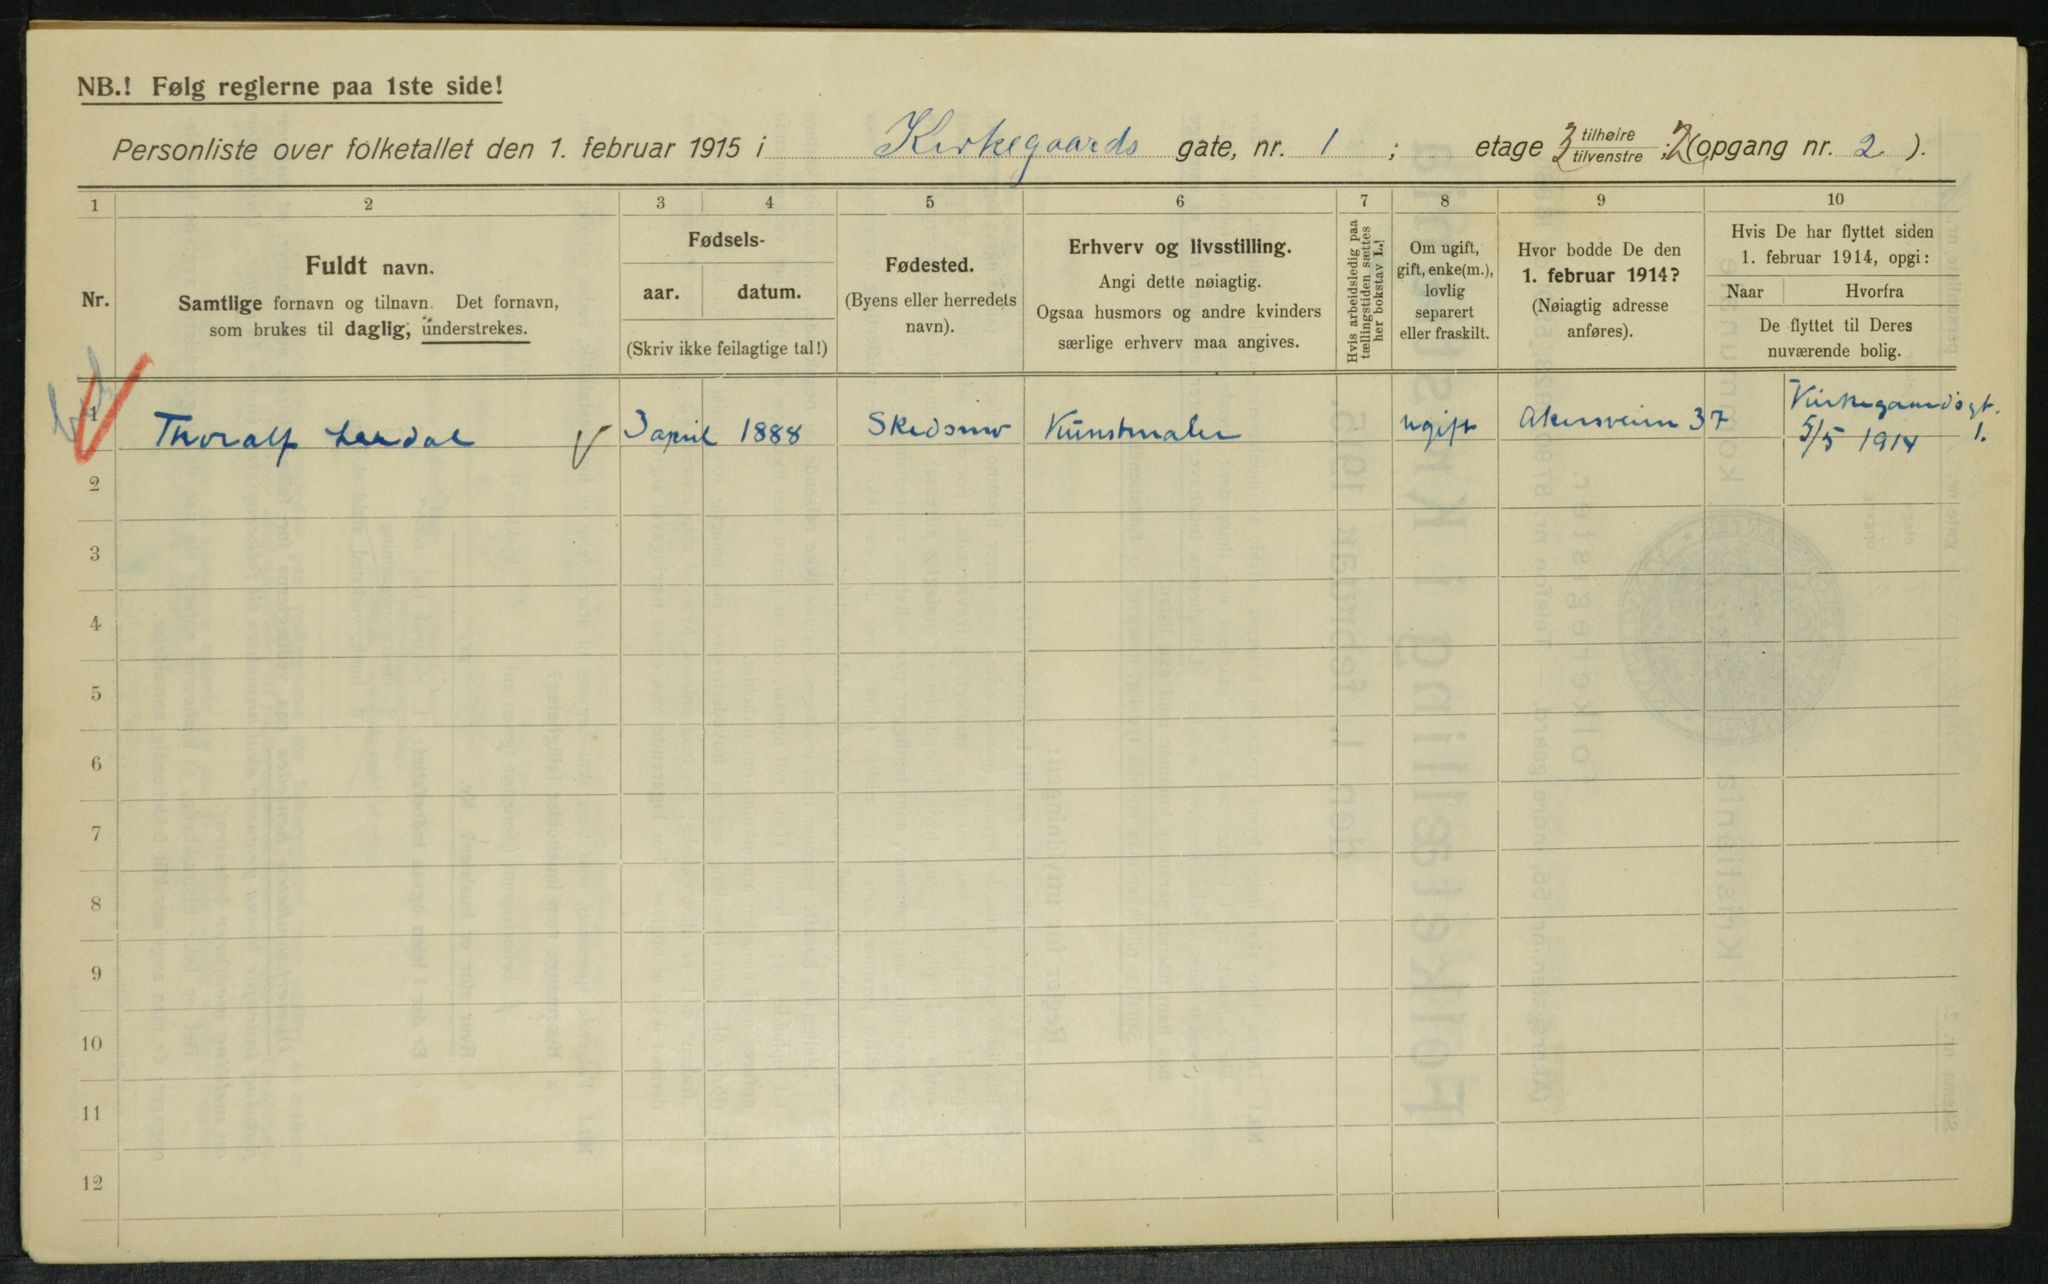 NB.! Følg reglerne paa 1ste side!
Personliste over folketallet den 1. februar 1915 i Kirkegaards gate, nr. 1 ; etage 3 tilhøire/tilvenstre ; 2 (opgang nr. 2 ).
1 2 3 4 5 6 7 8 9 10
Nr.
Fuldt navn.
Samtlige fornavn og tilnavn. Det fornavn,
som brukes til daglig, understrekes.
Fødsels-
aar. datum.
(Skriv ikke feilagtige tal!)
Fødested.
(Byens eller herredets
navn).
Erhverv og livsstilling.
Angi dette nøiagtig.
Ogsaa husmors og andre kvinders
særlige erhverv maa angives.
Hvis arbeidsledig paa
tællingstiden sættes
her bokstav L.!
Om ugift,
gift, enke(m.),
lovlig
separert
eller fraskilt.
Hvor bodde De den
1. februar 1914?
(Nøiagtig adresse
anføres).
Hvis De har flyttet siden
1. februar 1914, opgi:
Naar Hvorfra
De flyttet til Deres
nuværende bolig.
1 Thoralf 3 april 1888 Skedsmo Kunstmaler ugift Akersveien 37 Kirkegaardsgt. 1.
5/5 1914
2
3
4
5
6
7
8
9
10
11
12